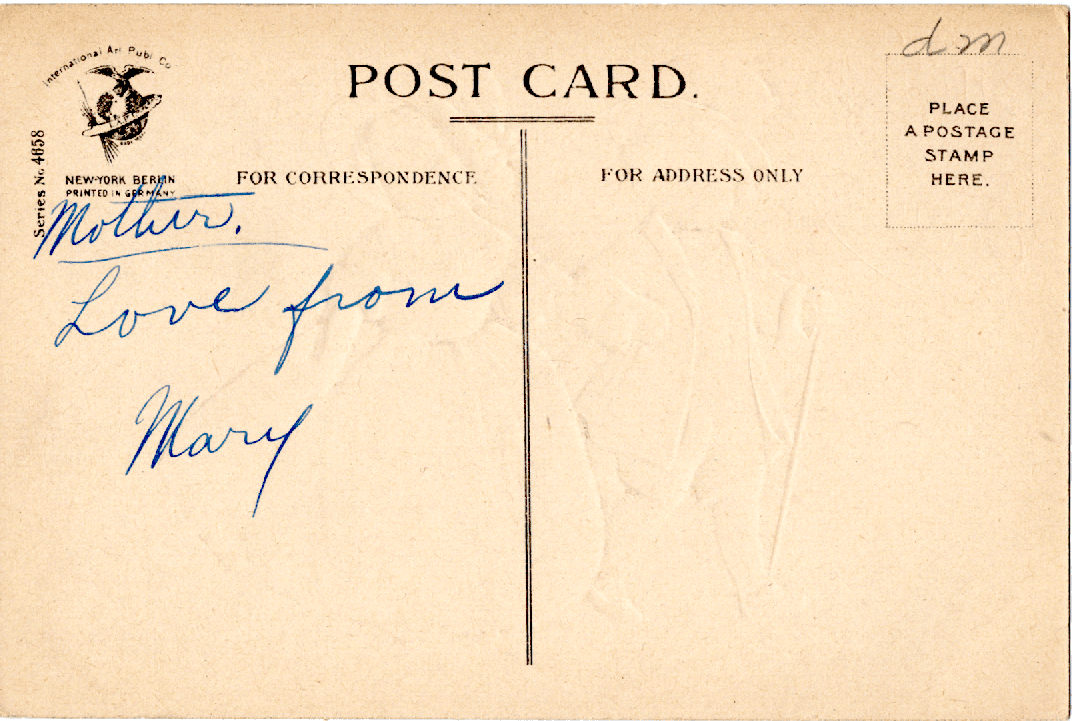 dm
International Art Publ. Co.
POST CARD.
PLACE
A POSTAGE
STAMP
HERE.
Series No. 4658
NEW-YORK BERLIN
PRINTED IN GERMANY
FOR CORRESPONDENCE
FOR ADDRESS ONLY
Mother.
Love from
Mary